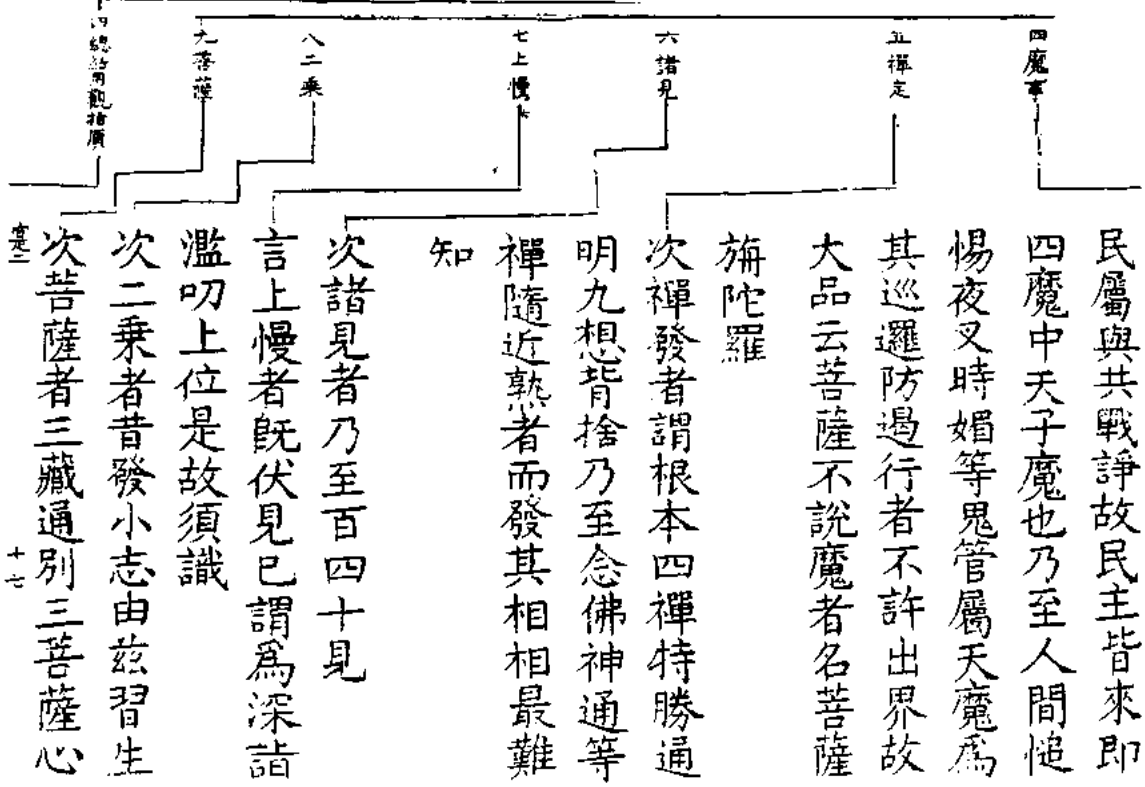 四魔事
五禪定
六諸見
七上慢
八二乗
九菩薩
民屬與共戰諍故民主皆來即
四魔中天子魔也乃至人間愷
惕夜叉時媚等鬼管屬天魔爲
其巡邏防遏行者不許出界故
大品云菩薩不說魔者名菩薩
旃陀羅
次禪發者謂根本四禪特勝通
明九想背捨乃至念佛神通等
禪隨近熟者而發其相相最難
知
次諸見者乃至百四十見
言上慢者既伏見已謂爲深詣
濫叨上位是故須識
次二乗者昔發小志由兹習生
次菩薩者三藏通別三菩薩心
十七